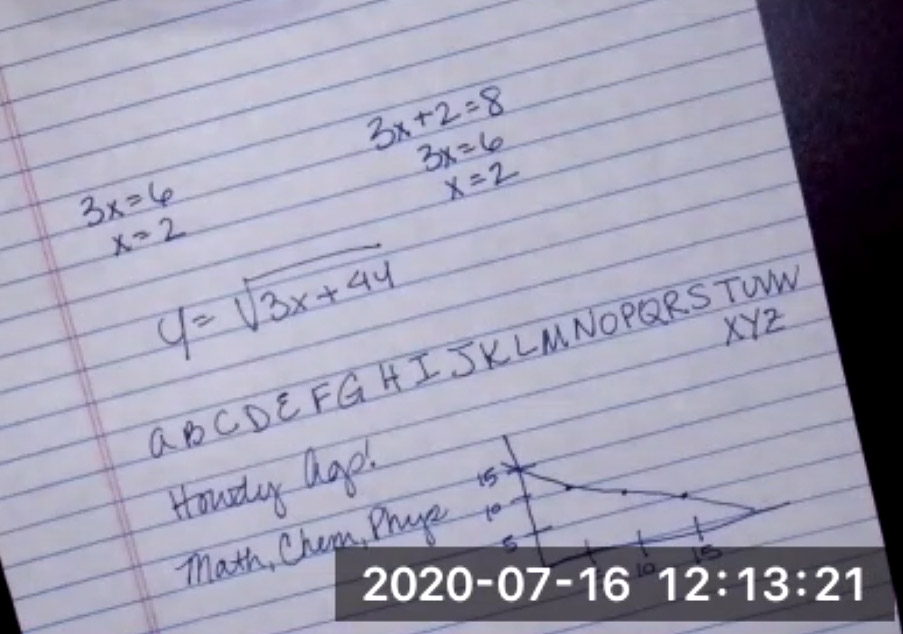 3x+2=8
3x=6
x=2
3x=6
x=2
y=√3x+44
ABCDEFGHIJKLMNOPQRSTUVW
XYZ
Howdy Ags!
Math, Chem, Phys
15
10
5
10
15
2020-07-16 12:13:21